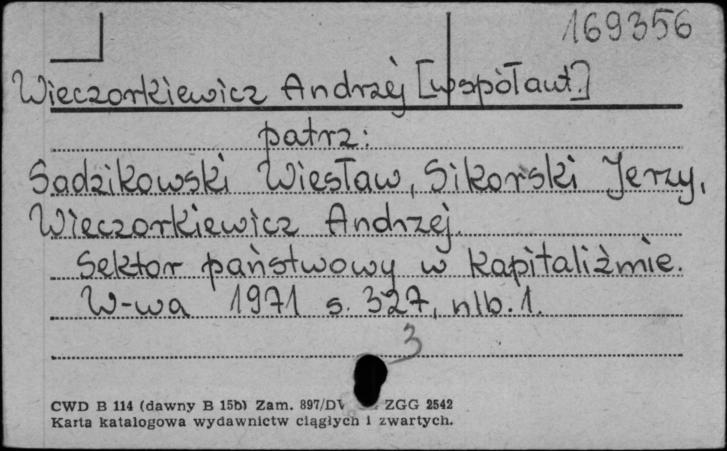 169356
Wieczorkiewicz Andrzej [współaut.]
patrz:
Sadzikowski Wiesław, Sikorski Jerzy,
Wieczorkiewicz Andrzej.
Sektor państwowy w kapitaliźmie.
W-wa 1971 s. 327, nlb. 1.
3
CWD B 114 (dawny B 15b) Zam. 897/DW ZGG 2542
Karta katalogowa wydawnictw ciągłych i zwartych.